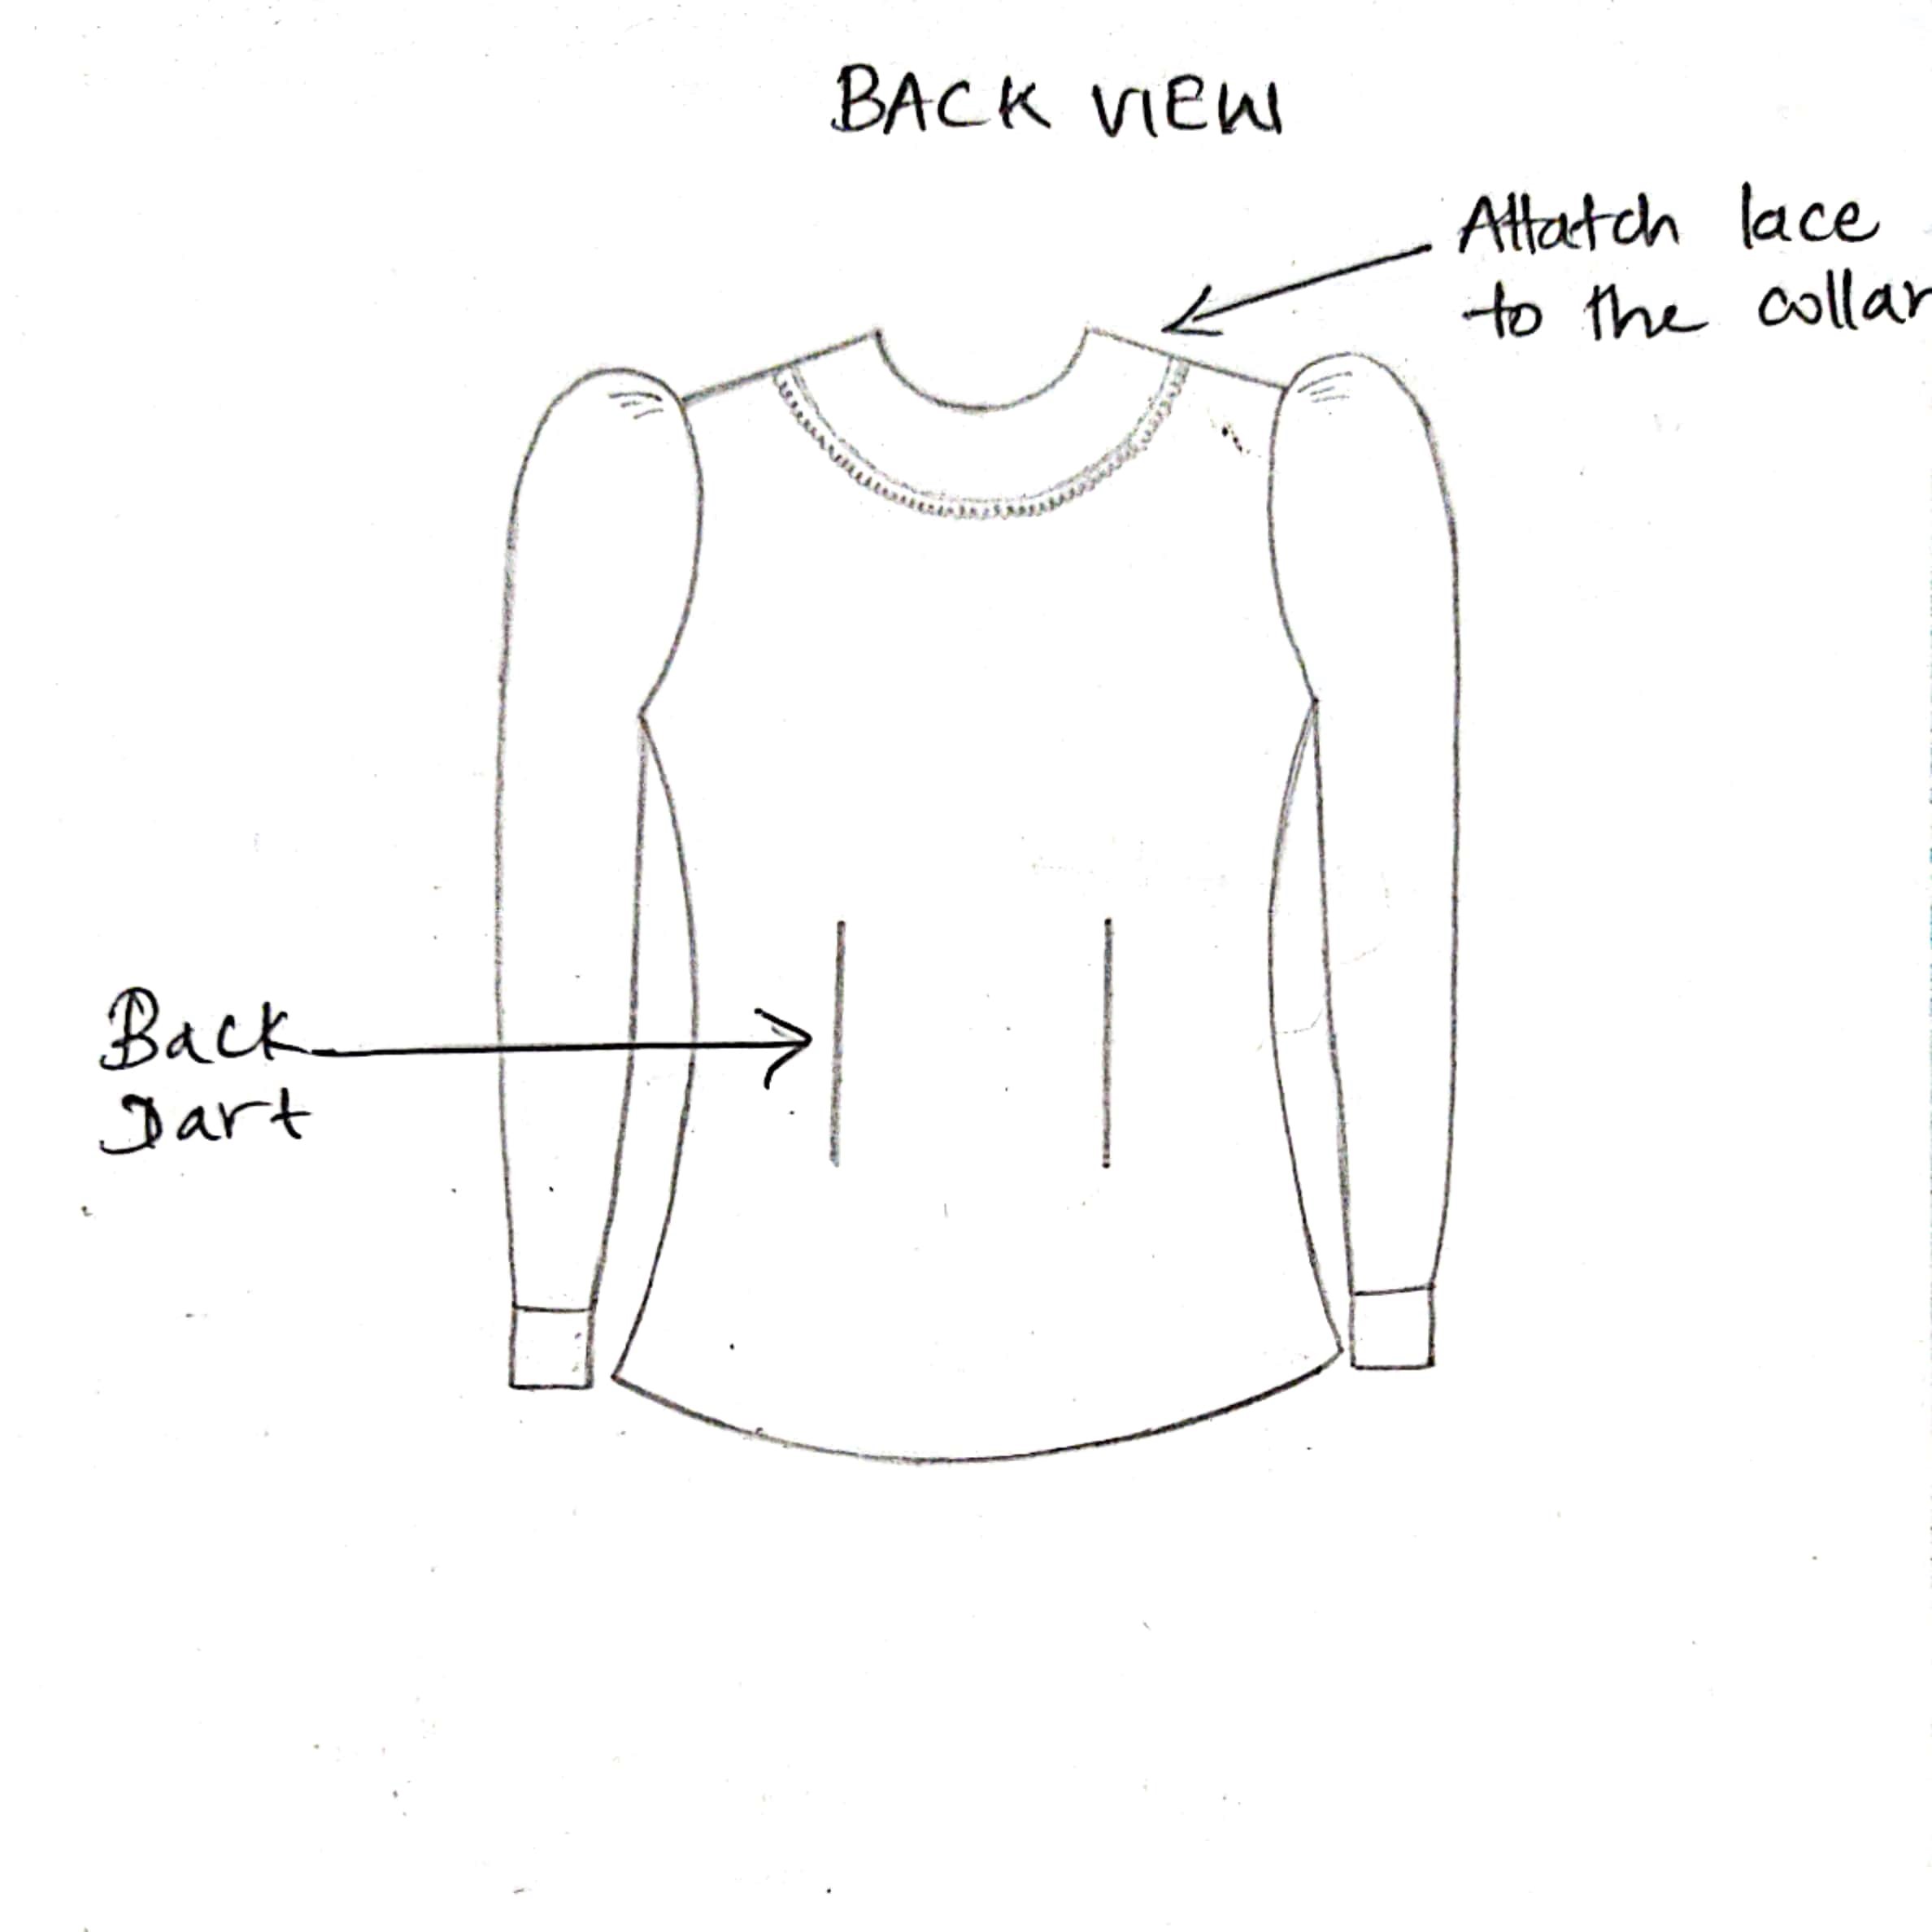 BACK VIEW
Attatch lace
to the collar
Back
Dart